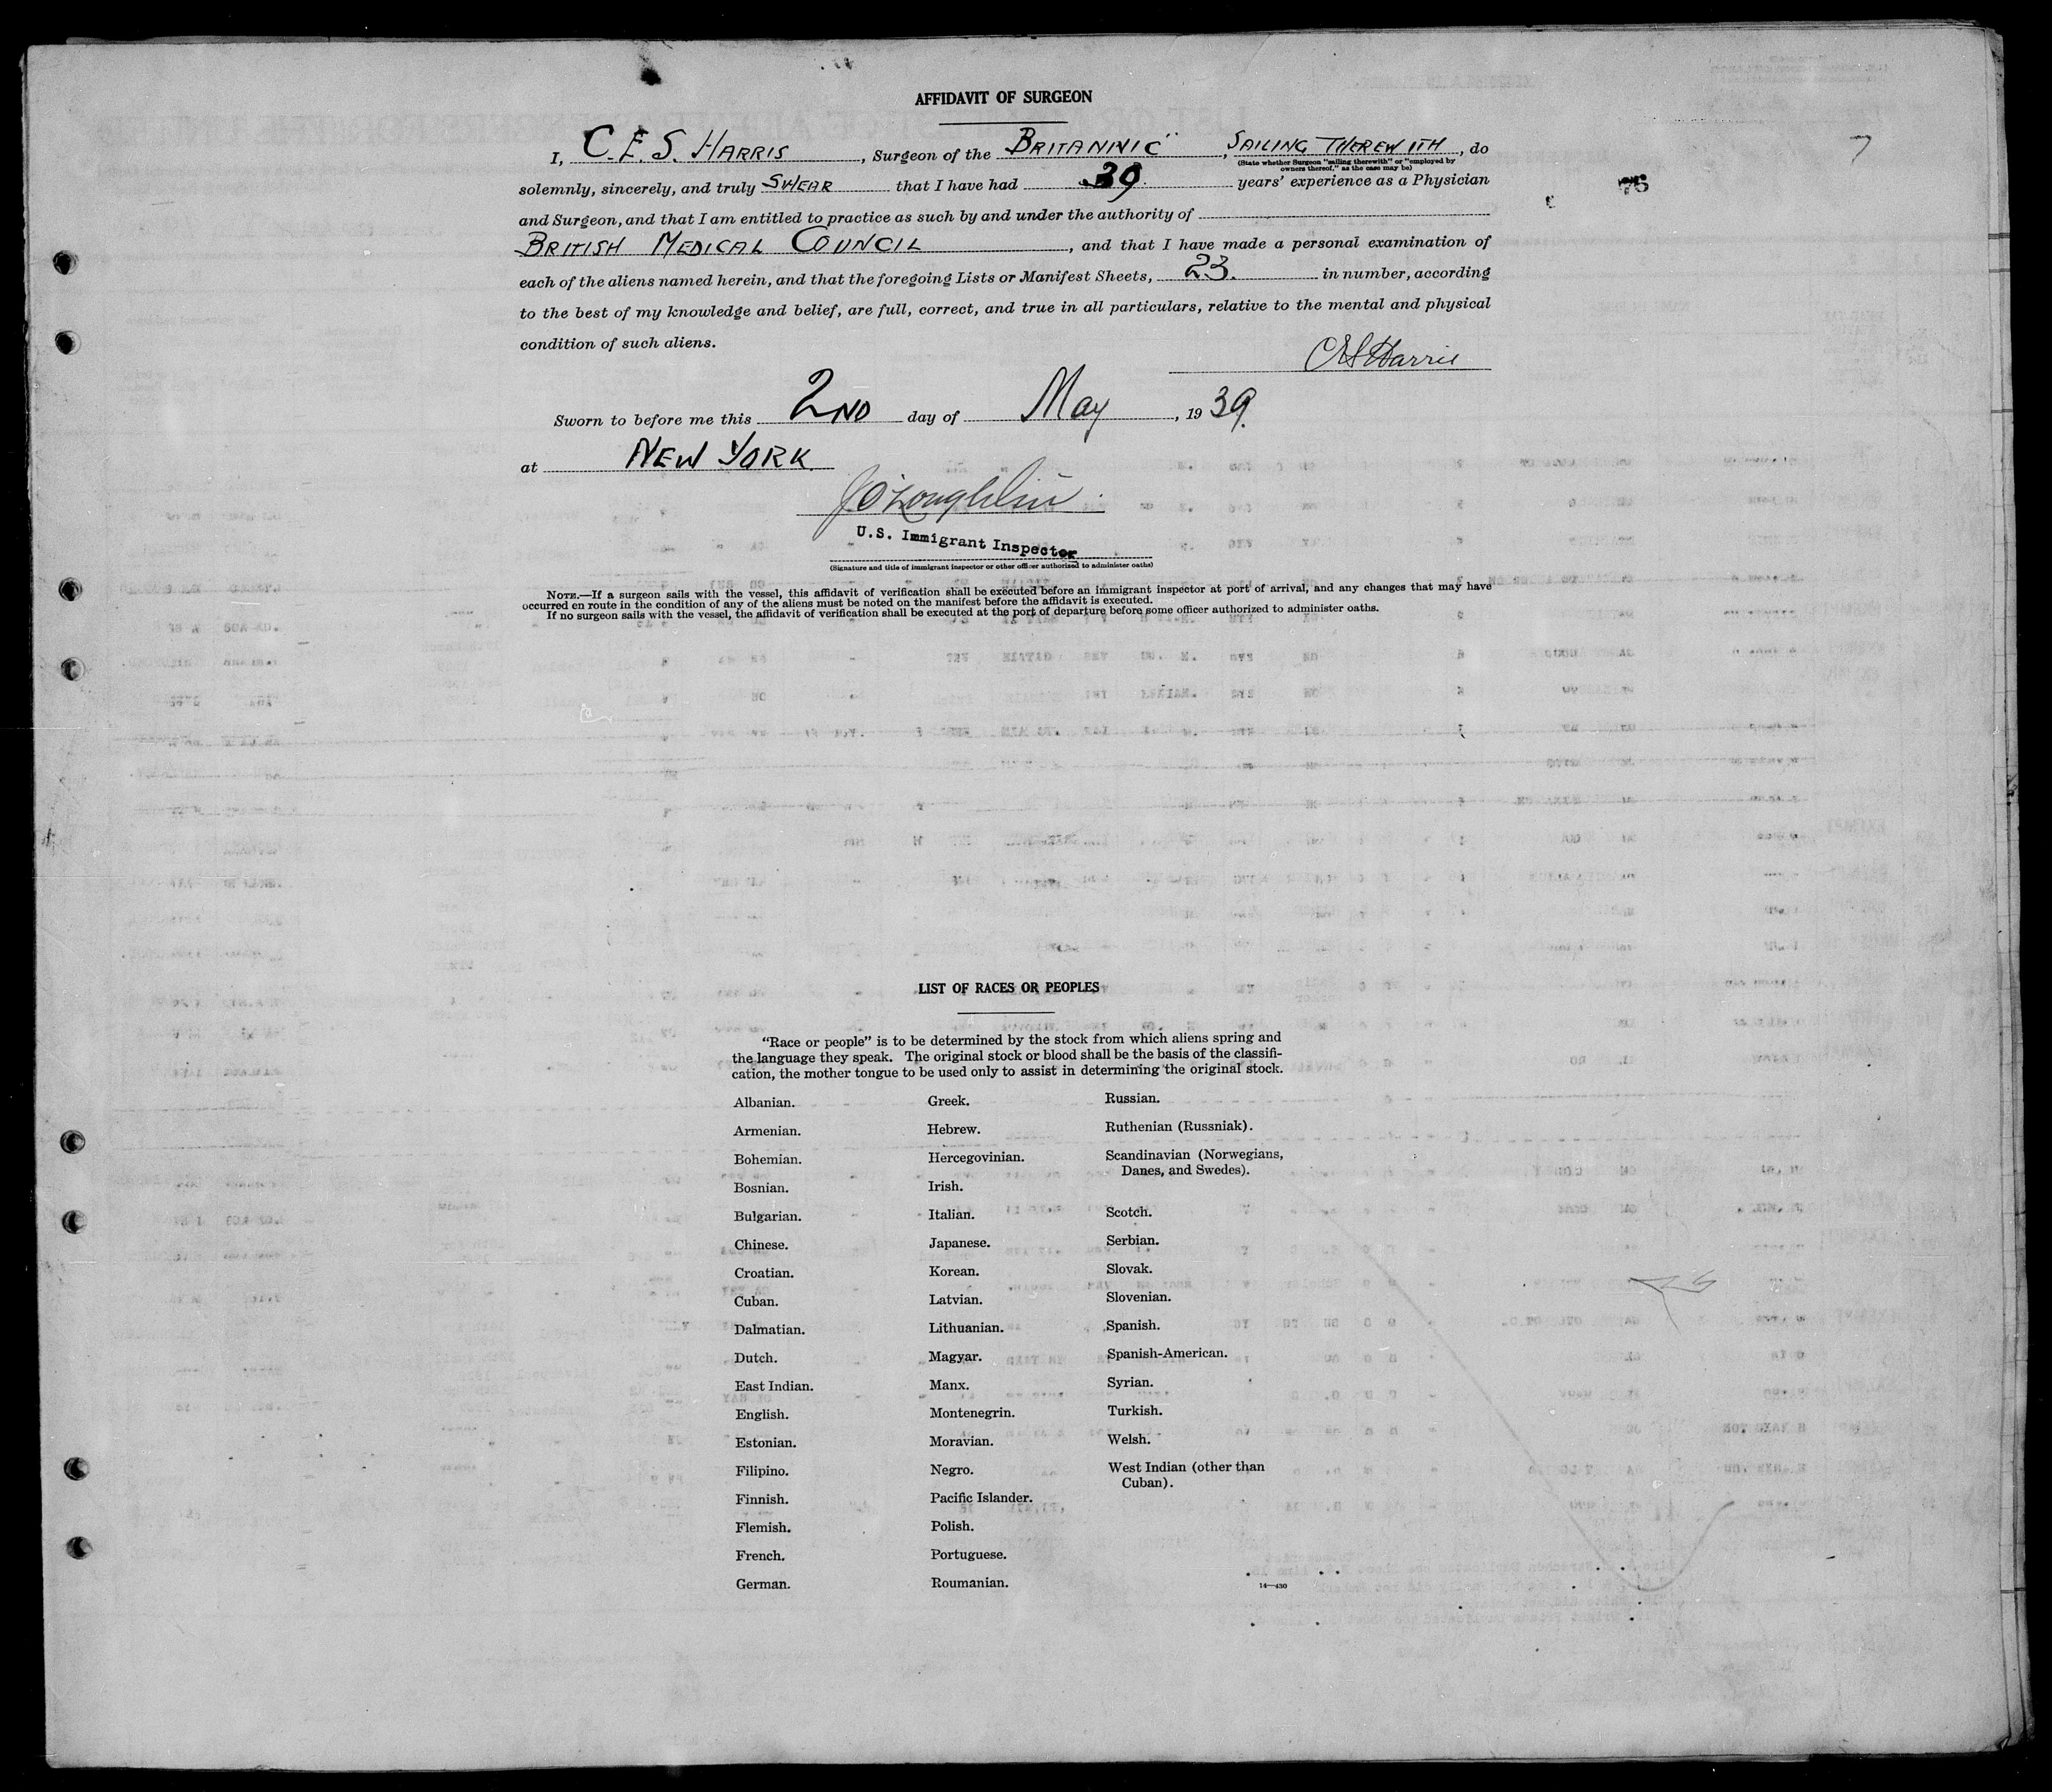 AFFIDAVIT OF SURGEON
I, C.E.S. HARRIS, Surgeon of the BRITANNIC", SAILING THEREWITH, do
(State whether Surgeon "sailing therewith" or "employed by
owners thereof," as the case may be)
solemnly, sincerely, and truly SWEAR that I have had 39. years' experience as a Physician
75
and Surgeon, and that I am entitled to practice as such by and under the authority of
BRITISH MEDICAL COUNCIL, and that I have made a personal examination of
each of the aliens named herein, and that the foregoing Lists or Manifest Sheets, 23. in number, according
to the best of my knowledge and belief, are full, correct, and true in all particulars, relative to the mental and physical
condition of such aliens.
CES Harris
Sworn to before me this 2ND day of May, 1939.
at NEW YORK
J O'Loughlin
U.S. Immigrant Inspector
(Signature and title of immigrant inspector or other officer authorized to administer oaths)
NOTE.—If a surgeon sails with the vessel, this affidavit of verification shall be executed before an immigrant inspector at port of arrival, and any changes that may have
occurred en route in the condition of any of the aliens must be noted on the manifest before the affidavit is executed.
If no surgeon sails with the vessel, the affidavit of verification shall be executed at the port of departure before some officer authorized to administer oaths.
LIST OF RACES OR PEOPLES
"Race or people" is to be determined by the stock from which aliens spring and
the language they speak. The original stock or blood shall be the basis of the classifi-
cation, the mother tongue to be used only to assist in determining the original stock.
Albanian.
Armenian.
Bohemian.
Bosnian.
Bulgarian.
Chinese.
Croatian.
Cuban.
Dalmatian.
Dutch.
East Indian.
English.
Estonian.
Filipino.
Finnish.
Flemish.
French.
German.
Greek.
Hebrew.
Hercegovinian.
Irish.
Italian.
Japanese.
Korean.
Latvian.
Lithuanian.
Magyar.
Manx.
Montenegrin.
Moravian.
Negro.
Pacific Islander.
Polish.
Portuguese.
Roumanian.
Russian.
Ruthenian (Russniak).
Scandinavian (Norwegians,
Danes, and Swedes).
Scotch.
Serbian.
Slovak.
Slovenian.
Spanish.
Spanish-American.
Syrian.
Turkish.
Welsh.
West Indian (other than
Cuban).
14—430